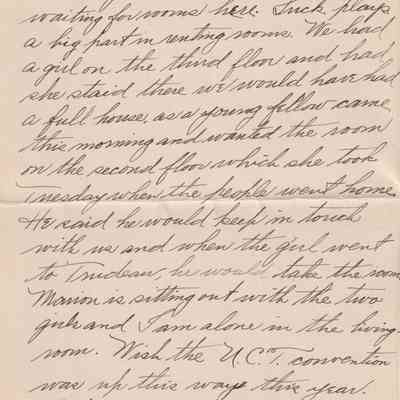 waiting for rooms here. Luck plays
a big part in renting rooms. We had
a girl on the third floor and had
she staid there we would have had
a full house, as a young fellow came
this morning and wanted the room
on the second floor which she took
Tuesday when the people went home.
He said he would keep in touch
with us and when the girl went
to Trudeau, he would take the room
Marion is sitting out with the two
girls and I am alone in the living-
room. Wish the U.C.T. convention
was up this way this year.